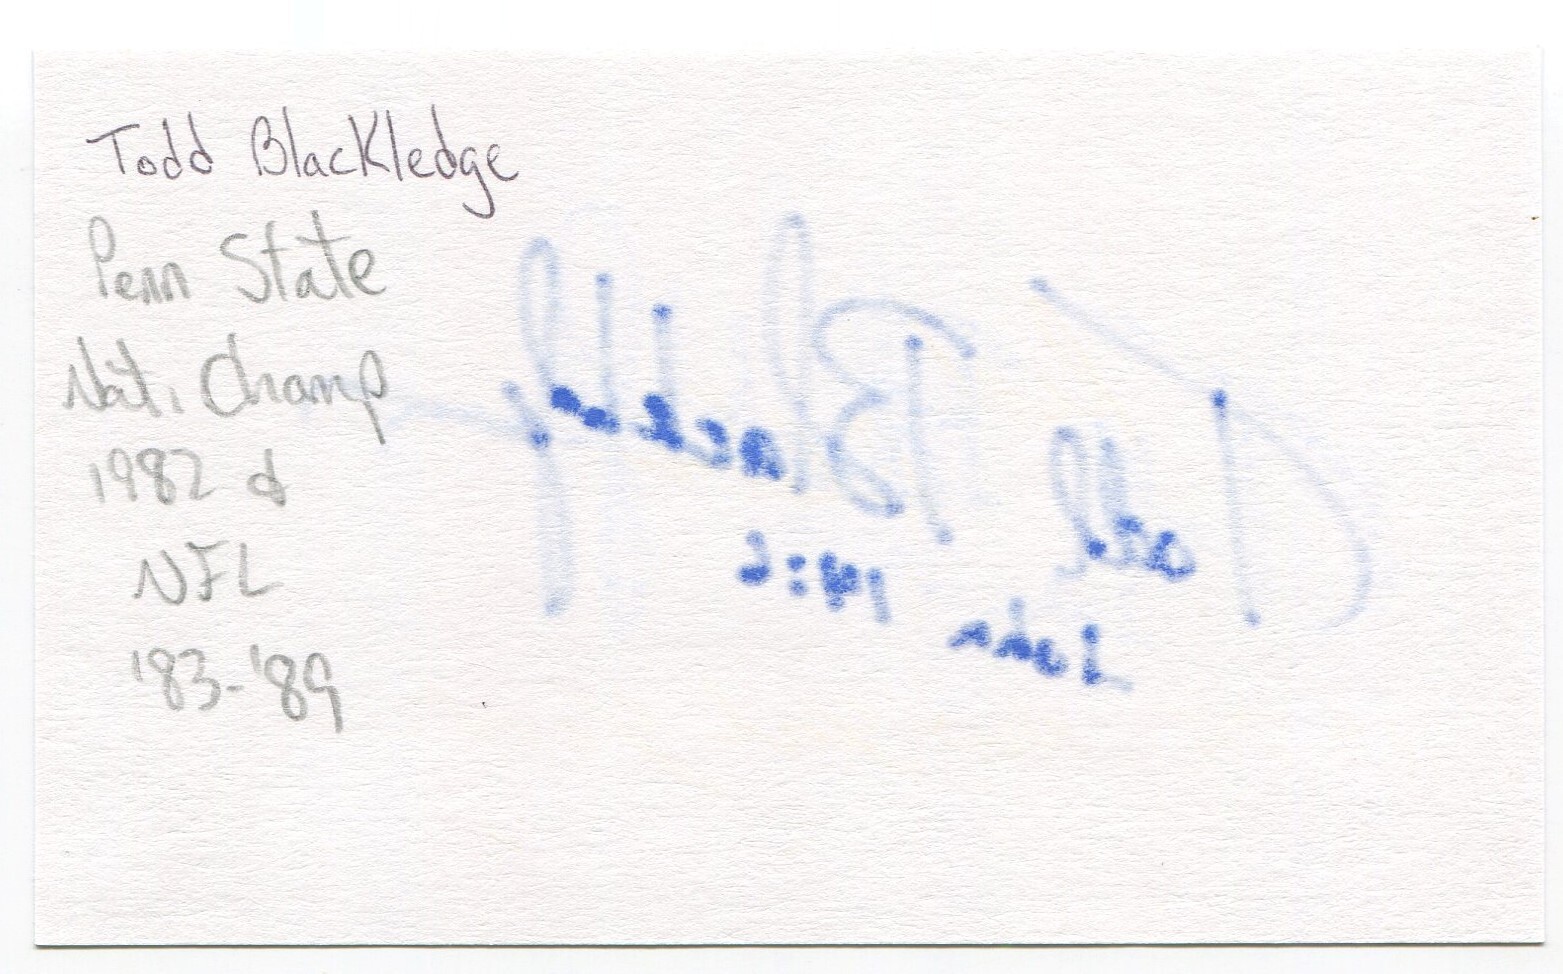 Todd Blackledge
Penn State
Nat. Champ
1982 &
NFL
'83-'89
Todd Blackledge
John 14:6